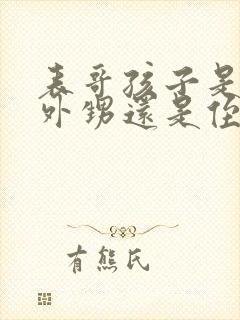 表哥孩子是
外甥還是侄
有熊氏